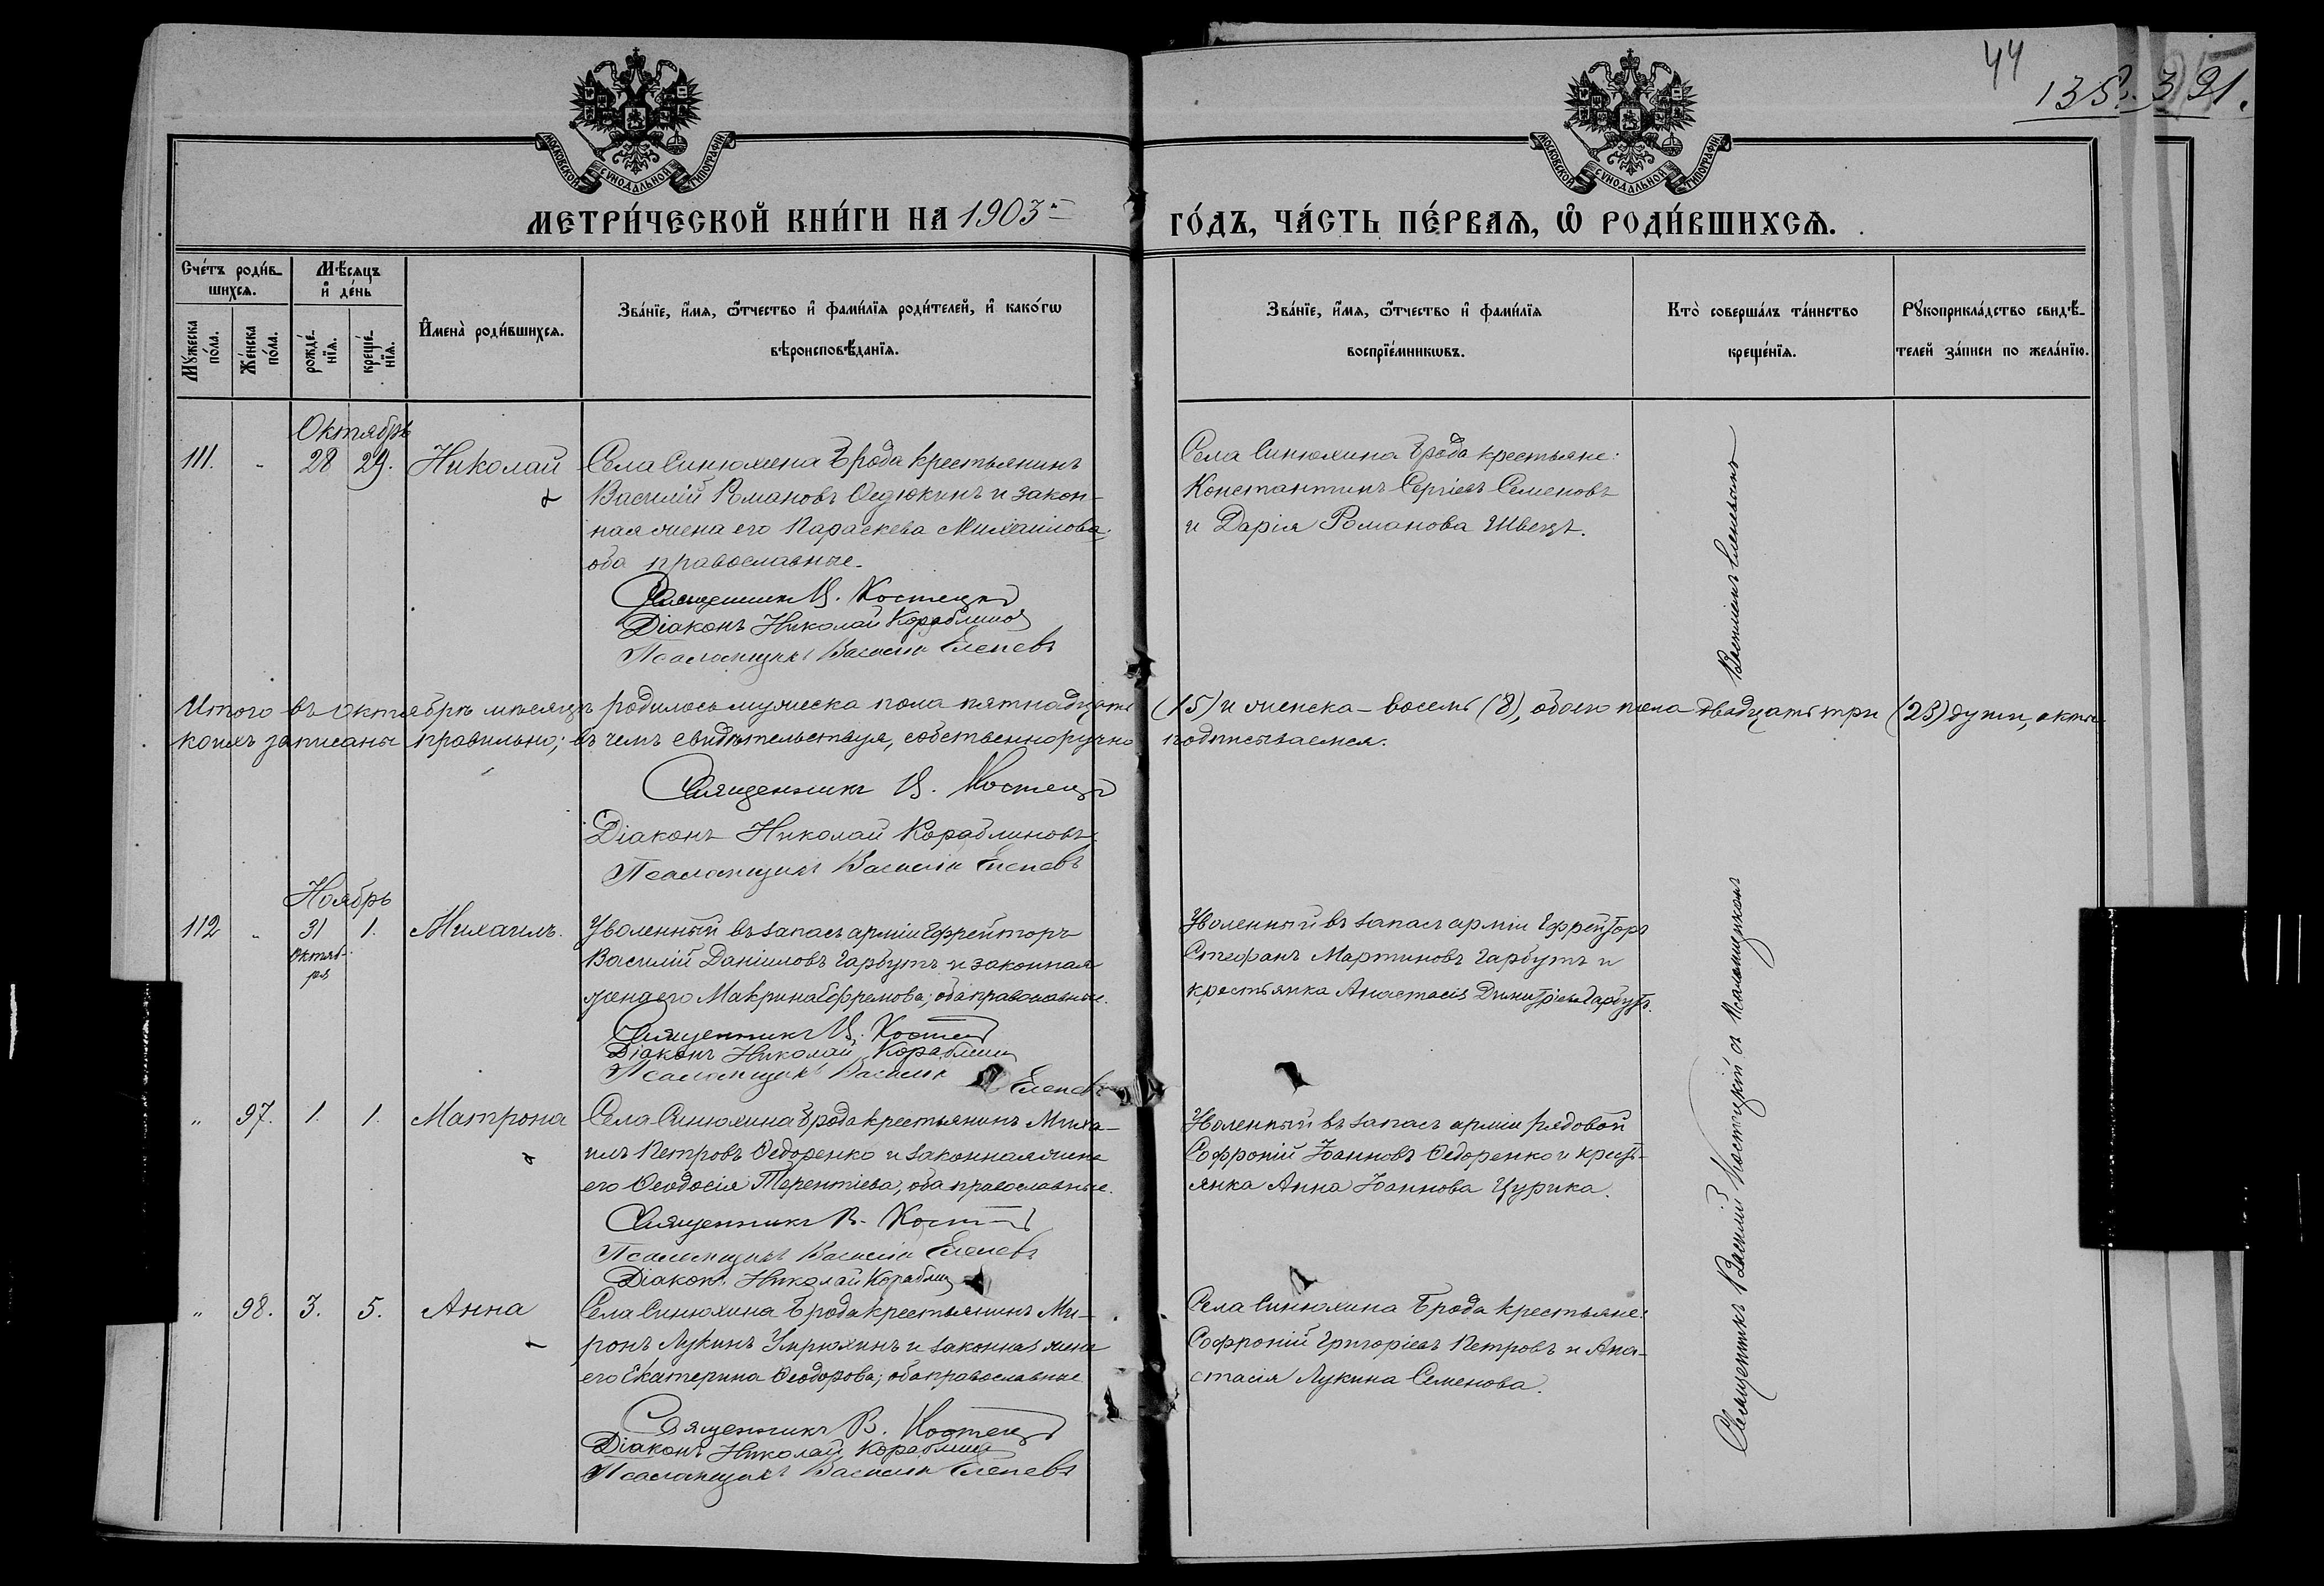 44
135. 3 91.
МОСКОВСКОЙ СѴНОДАЛЬНОЙ ТИПОГРАФІИ
МОСКОВСКОЙ СѴНОДАЛЬНОЙ ТИПОГРАФІИ
МЕТРИ́ЧЕСКОЙ КНИ́ГИ НА 1903й ГО́ДЪ, ЧА́СТЬ ПЕ́РВАѦ, Ѡ РОДИ́ВШИХСѦ.
Сче́тъ роди́в-
шихсѧ.
Мѣ́сѧцъ
и҆ де́нь
Мꙋ́жеска
по́ла.
Же́нска
по́ла.
рожде́-
нїѧ.
креще́-
нїѧ.
И҆мена̀ роди́вшихсѧ.
Зва́нїе, и҆́мѧ, ѻ҆́тчество и҆ фами́лїѧ роди́телей, и҆ како́гѡ
вѣроисповѣ́данїѧ.
Зва́нїе, и҆́мѧ, ѻ҆́тчество и҆ фами́лїѧ
воспрїе́мникѡвъ.
Кто̀ соверша́лъ та́инство
креще́нїѧ.
Рꙋкоприкла́дство свидѣ́-
телей за́писи по жела́нїю.
Октябрь
111. „ 28 29. Николай
Села Синюхина Брода крестьянинъ
Василій Романовъ Ѳедюкинъ и закон-
ная жена его Параскева Михаилова;
оба православные.
Священникъ В. Костецкі
Діаконъ Николай Кораблинов
Псаломщикъ Василій Елепевъ
Села Синюхина Брода крестьяне:
Константинъ Сергіевъ Семеновъ
и Дарія Романова Швецъ.
Итого въ Октябрѣ мѣсяцѣ родилось мужеска пола пятнадцать (15) и женска – восемь (8), обоего пола двадцать три (23) души, акты
коихъ записаны правильно; въ чемъ свидѣтельствуя, собственноручно подписываемся.
Священникъ В. Костецкі
Діаконъ Николай Кораблиновъ
Псаломщикъ Василій Елепевъ
Ноябрь
112 „ 31 1. Михаилъ.
Октяб-
ря
Уволенный въ запасъ арміи Ефрейторъ
Василій Даніиловъ Гарбузъ и законная
жена его Макрина Ефремова; оба православные.
Священникъ В. Костец
Діаконъ Николай Кораблин
Псаломщикъ Василій
Елепевъ
Уволенный въ запасъ арміи Ефрейторъ
Стефанъ Мартиновъ Гарбузъ и
крестьянка Анастасія Димитріева Гарбузъ.
„ 97. 1. 1. Матрона
Села Синюхина Брода крестьянинъ Миха-
илъ Петровъ Ѳедоренко и законная жена
его Ѳеодосія Терентіева, оба православные.
Священникъ В. Костец
Псаломщикъ Василій Елепевъ
Діаконъ Николай Кораблин
Уволенный въ запасъ арміи рядовой
Софроній Іоанновъ Ѳедоренко и кресть-
янка Анна Іоаннова Цурика.
„ 98. 3. 5. Анна
Села Синюхина Брода крестьянинъ Ми-
ронъ Лукинъ Умрюхинъ и законная жена
его Екатерина Ѳеодорова; оба православные
Священникъ В. Костецкі
Діаконъ Николай Кораблин
Псаломщикъ Василій Елепевъ
Села Синюхина Брода крестьяне:
Софроній Григоріевъ Петровъ и Ана-
стасія Лукина Семенова.
Священникъ Василій Костецкій съ псаломщикомъ
Василіемъ Елепевымъ